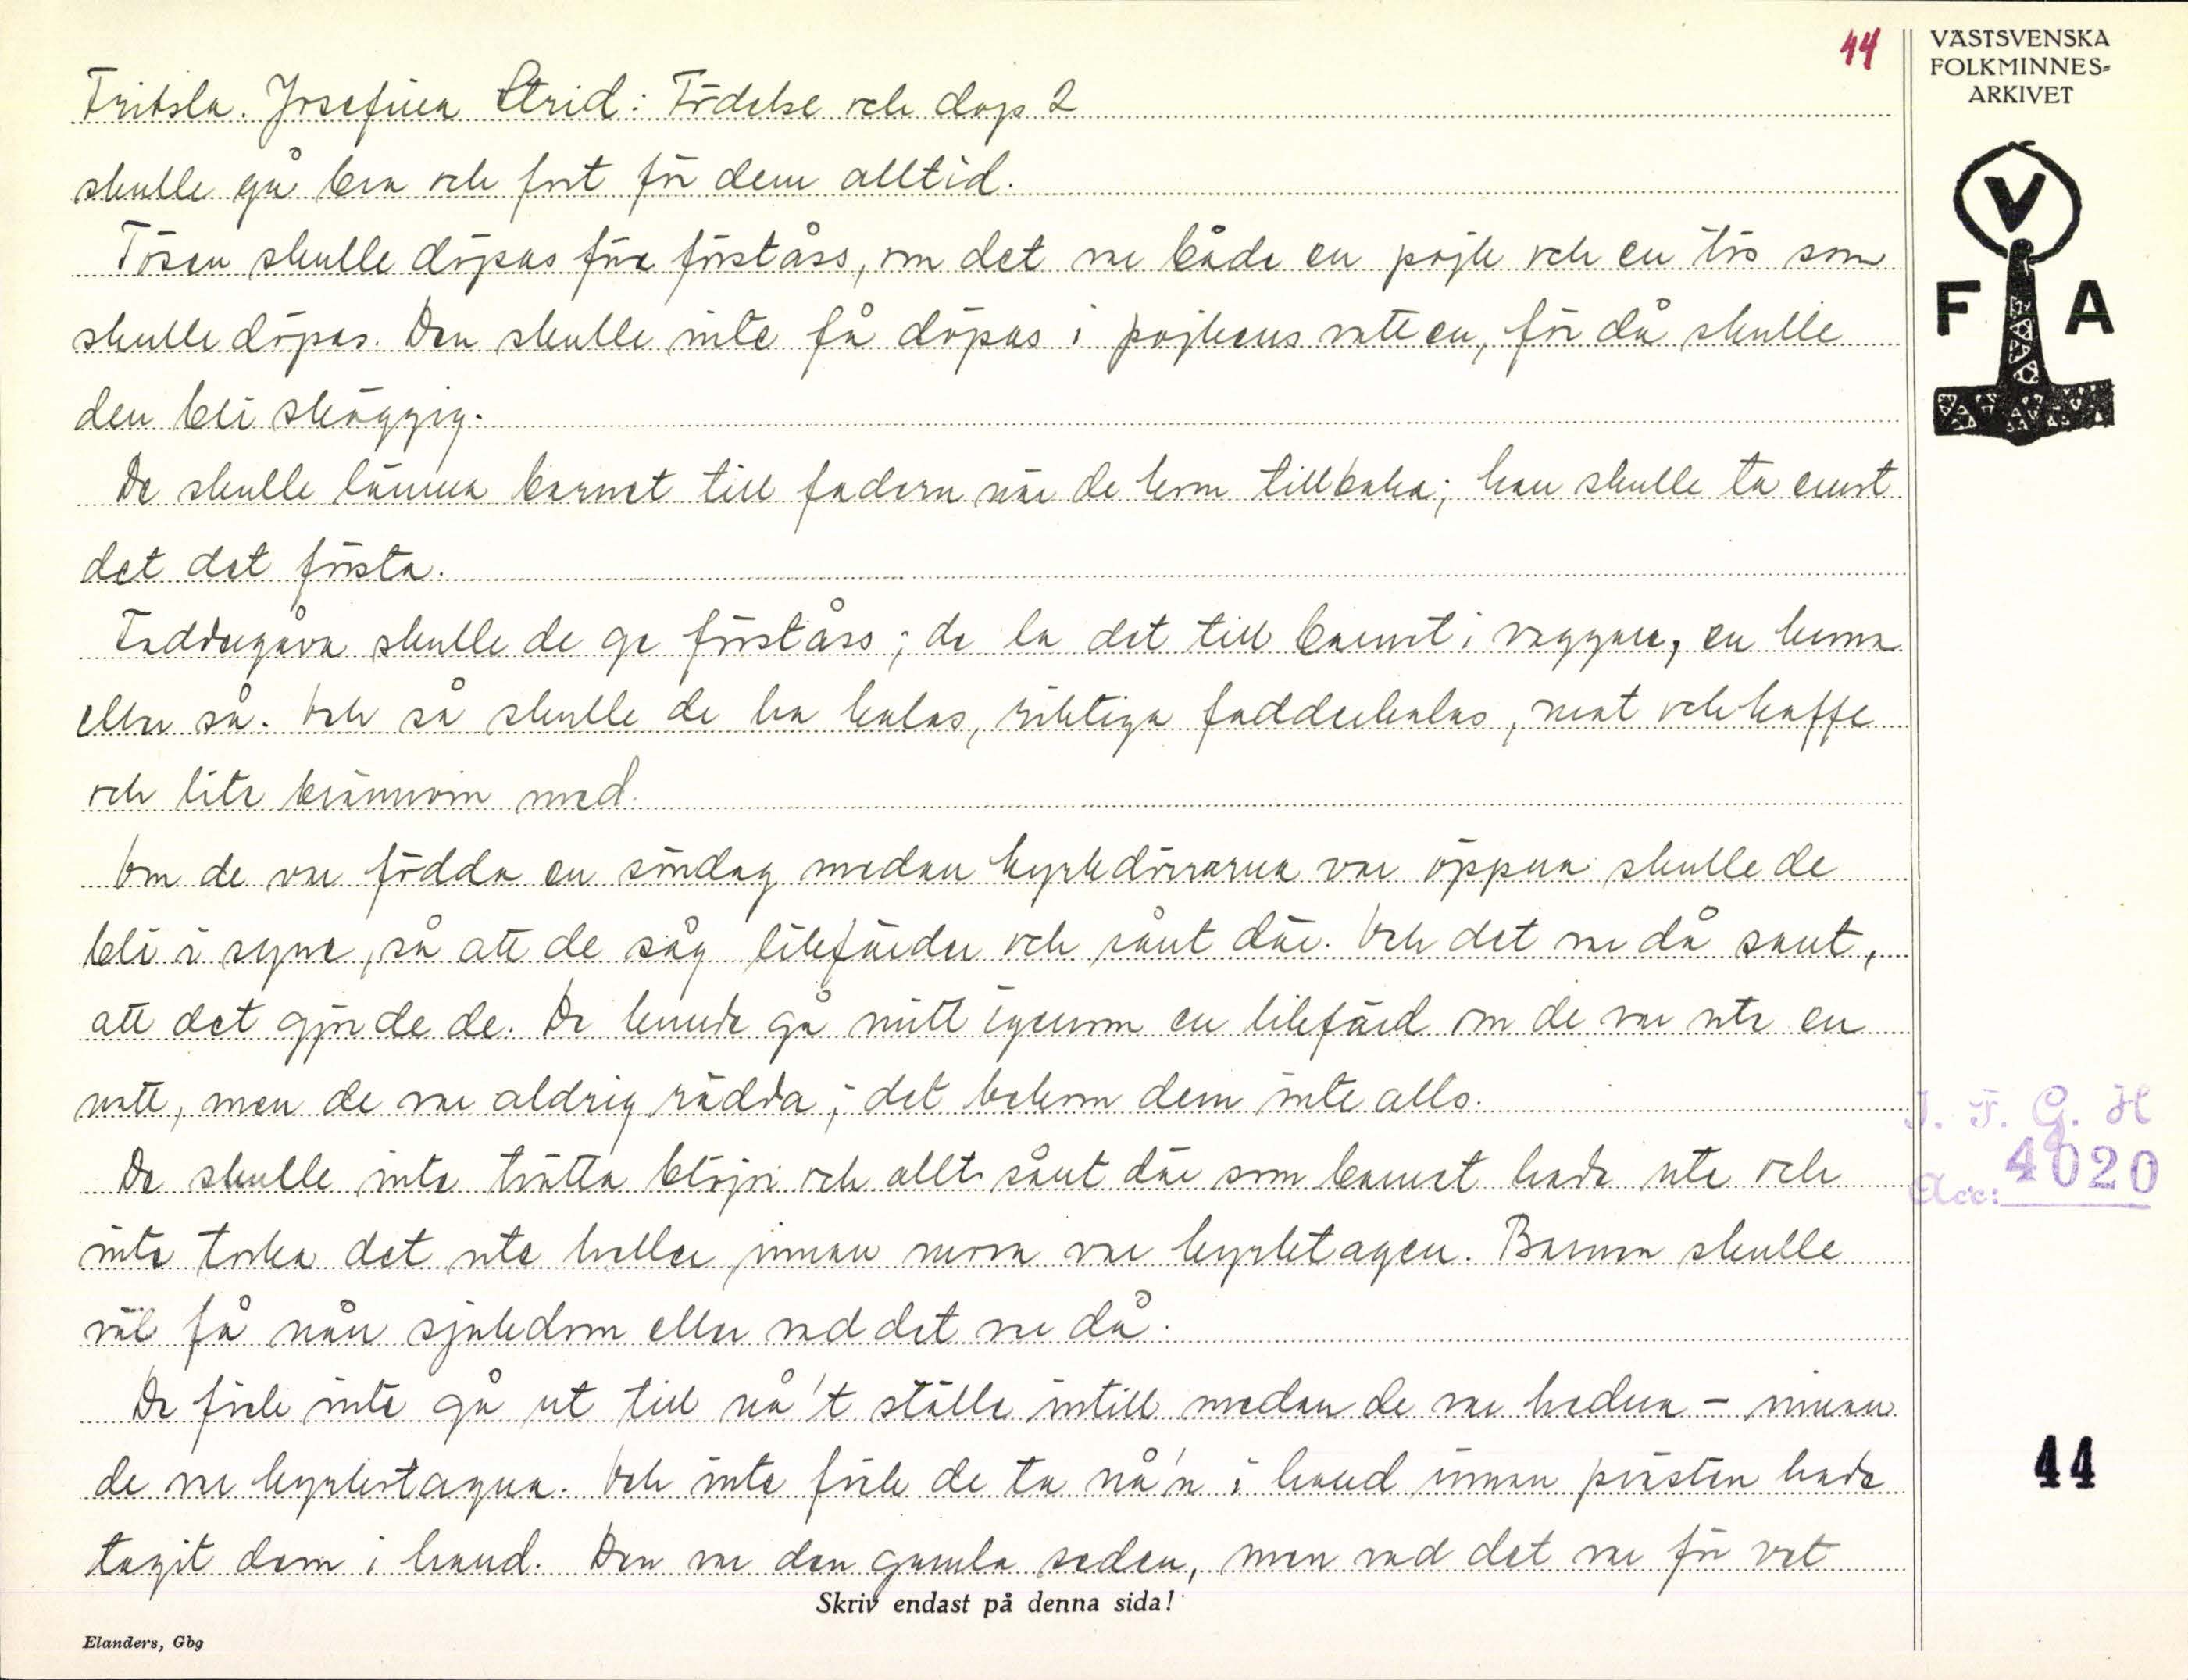 44
VÄSTSVENSKA
FOLKMINNES-
ARKIVET
V
F A
Fritsla. Josefina Strid: Födelse och dop 2
skulle gå bra och fort för dem alltid.
Tösen skulle döpas före förståss, om det var både en pojk och en tös som
skulle döpas. Den skulle inte få döpas i pojkens vatten, för då skulle
den bli skäggig.
De skulle lämna barnet till fadern när de kom tillbaka; han skulle ta emot
det det första.
Faddergåva skulle de ge förståss; de la det till barnet i vaggan, en krona
eller så. Och så skulle de ha kalas, riktiga fadderkalas, mat och kaffe
och lite brännvin med.
Om de var födda en söndag medan kyrkdörrarna var öppna skulle de
bli i syne, så att de såg likfärder och sånt där. Och det var då sant,
att det gjorde de. De kunde gå mitt igenom en likfärd om de var ute en
natt, men de var aldrig rädda; det bekom dem inte alls.
De skulle inte tvätta blöjor och allt sånt där som barnet hade ute och
inte torka det ute heller innan mora var kyrktagen. Barnen skulle
väl få nån sjukdom eller vad det var då.
De fick inte gå ut till nå't ställe intill medan de var hedna - innan
de var kyrkotagna. Och inte fick de ta nå'n i hand innan prästen hade
tagit dem i hand. Den var den gamla seden, men vad det var för vet
Skriv endast på denna sida!
Elanders, Gbg
I. F. G. H
Acc: 4020
44